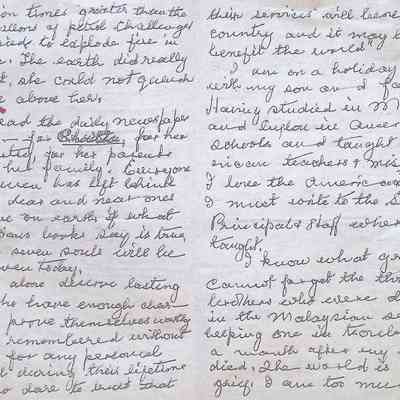 on times greater than the
allons of petrol Challenger
to explode fire in
The earth did really
she could not quench
above her.
read the daily newspaper
for her
for her parents
her family. Everyone
was left behind
dear and near ones
on earth, if what
books say is true,
seven souls will be
today.
alone deserve lasting
have enough char-
prove themselves worthy
remembered without
for any personal
during their lifetime
dare to trust that
their services will bene
country and it may b
benefit the world"
I am on a holiday
with my son and f
Having studied in M
and in Amer
schools and taught
erican teachers & mis
I love the Americ
I must write to the S
Principal & Staff where
taught.
I know what gr
cannot forget the thr
brothers who were d
in the Malaysian se
helping one in trouble
a month after my
died. The world is
grief. I am too muc